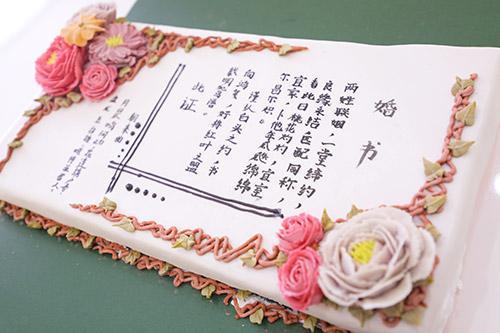 婚书
两姓联姻,一堂缔约,
良缘永结匹配同称,
自此日桃花灼灼,宜室
宜家,卜他年瓜瓞绵绵
尔昌尔炽。
谨以白头之约,书
向鸿笺,好将红叶之盟
载明鸳谱。
此证